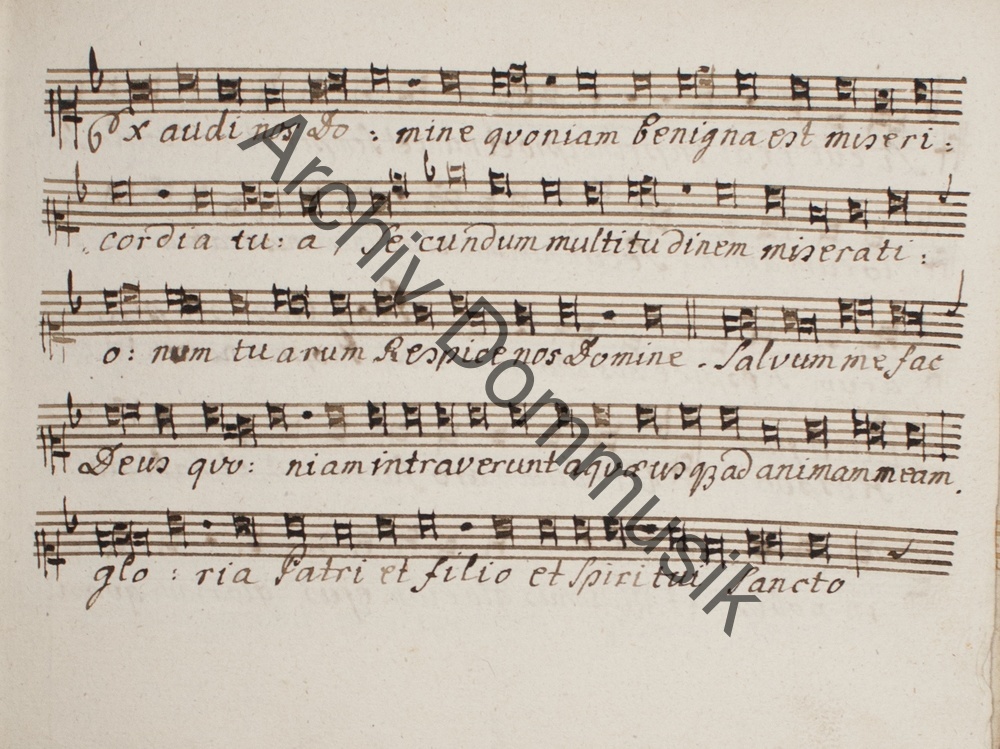 Exaudi nos Do: mine quoniam benigna est miseri:
cordia tu: a Secundum multitudinem miserati:
o: num tuarum Respice nos Domine. Salvum me fac
Deus quo: niam intraverunt aquæ usq3 ad animam meam.
glo: ria Patri et filio et Spiritui Sancto
Archiv Dommusik